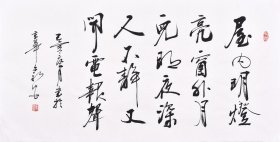 屋内明燈
亮窗外月
兒明夜深
人不靜又
聞電報聲